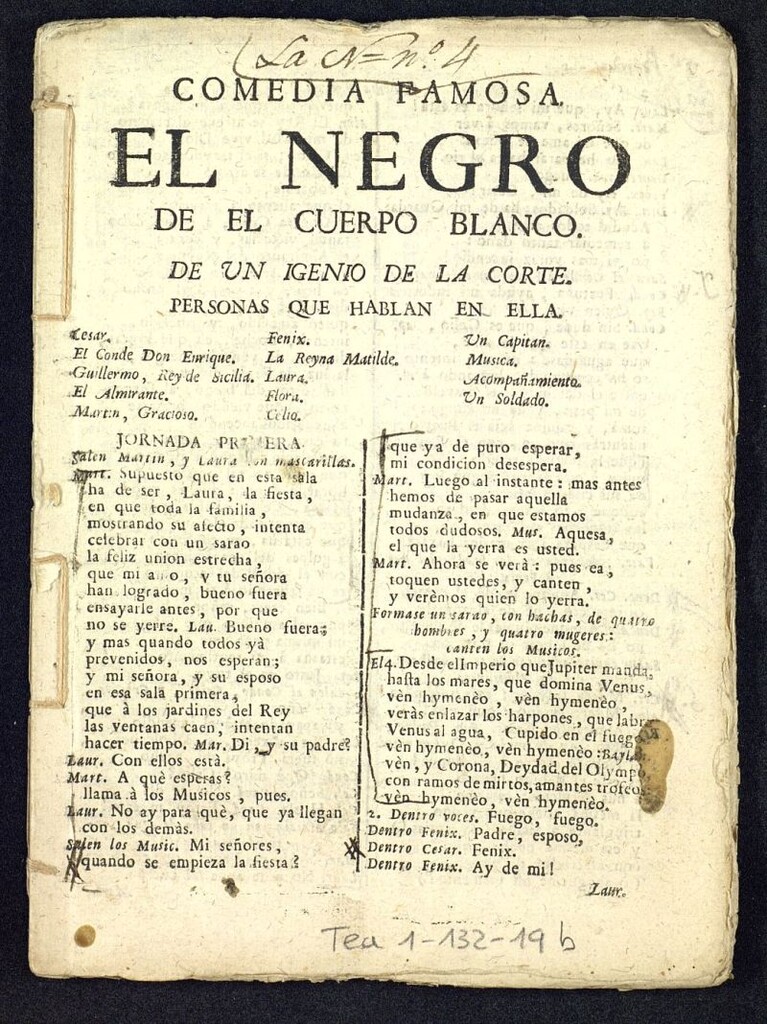 La N= nº. 4
COMEDIA FAMOSA.
EL NEGRO
DE EL CUERPO BLANCO.
DE UN IGENIO DE LA CORTE.
PERSONAS QUE HABLAN EN ELLA.
Cesar.
El Conde Don Enrique.
Guillermo, Rey de Sicilia.
El Almirante.
Martin, Gracioso.
Fenix.
La Reyna Matilde.
Laura.
Flora.
Celio.
Un Capitan.
Musica.
Acompañamiento.
Un Soldado.
JORNADA PRIMERA.
Salen Martin, y Laura con mascarillas.
Mart. Supuesto que en esta sala
ha de ser, Laura, la fiesta,
en que toda la familia,
mostrando su afecto, intenta
celebrar con un sarao
la feliz union estrecha,
que mi amo, y tu señora
han logrado, bueno fuera
ensayarle antes, por que
no se yerre. Lau. Bueno fuera;
y mas quando todos yà
prevenidos, nos esperan;
y mi señora, y su esposo
en esa sala primera,
que à los jardines del Rey
las ventanas caen, intentan
hacer tiempo. Mar. Di, y su padre?
Laur. Con ellos està.
Mart. A què esperas?
llama à los Musicos, pues.
Laur. No ay para què, que ya llegan
con los demàs.
Salen los Music. Mi señores,
quando se empieza la fiesta?
que ya de puro esperar,
mi condicion desespera.
Mart. Luego al instante: mas antes
hemos de pasar aquella
mudanza, en que estamos
todos dudosos. Mus. Aquesa,
el que la yerra es usted.
Mart. Ahora se verà: pues ea,
toquen ustedes, y canten,
y verèmos quien lo yerra.
Formase un sarao, con hachas, de quatro
hombres, y quatro mugeres:
canten los Musicos.
El 4. Desde el Imperio que Jupiter manda,
hasta los mares, que domina Venus,
vèn hymenèo, vèn hymenèo,
veràs enlazar los harpones, que labra
Venus al agua, Cupido en el fuego,
vèn hymenèo, vèn hymenèo:
vèn, y Corona, Deydad del Olympo,
con ramos de mirtos, amantes trofeos:
vèn hymenèo, vèn hymenèo.
2. Dentro voces. Fuego, fuego.
Dentro Fenix. Padre, esposo,
Dentro Cesar. Fenix.
Dentro Fenix. Ay de mi!
Laur.
Tea 1-132-19 b